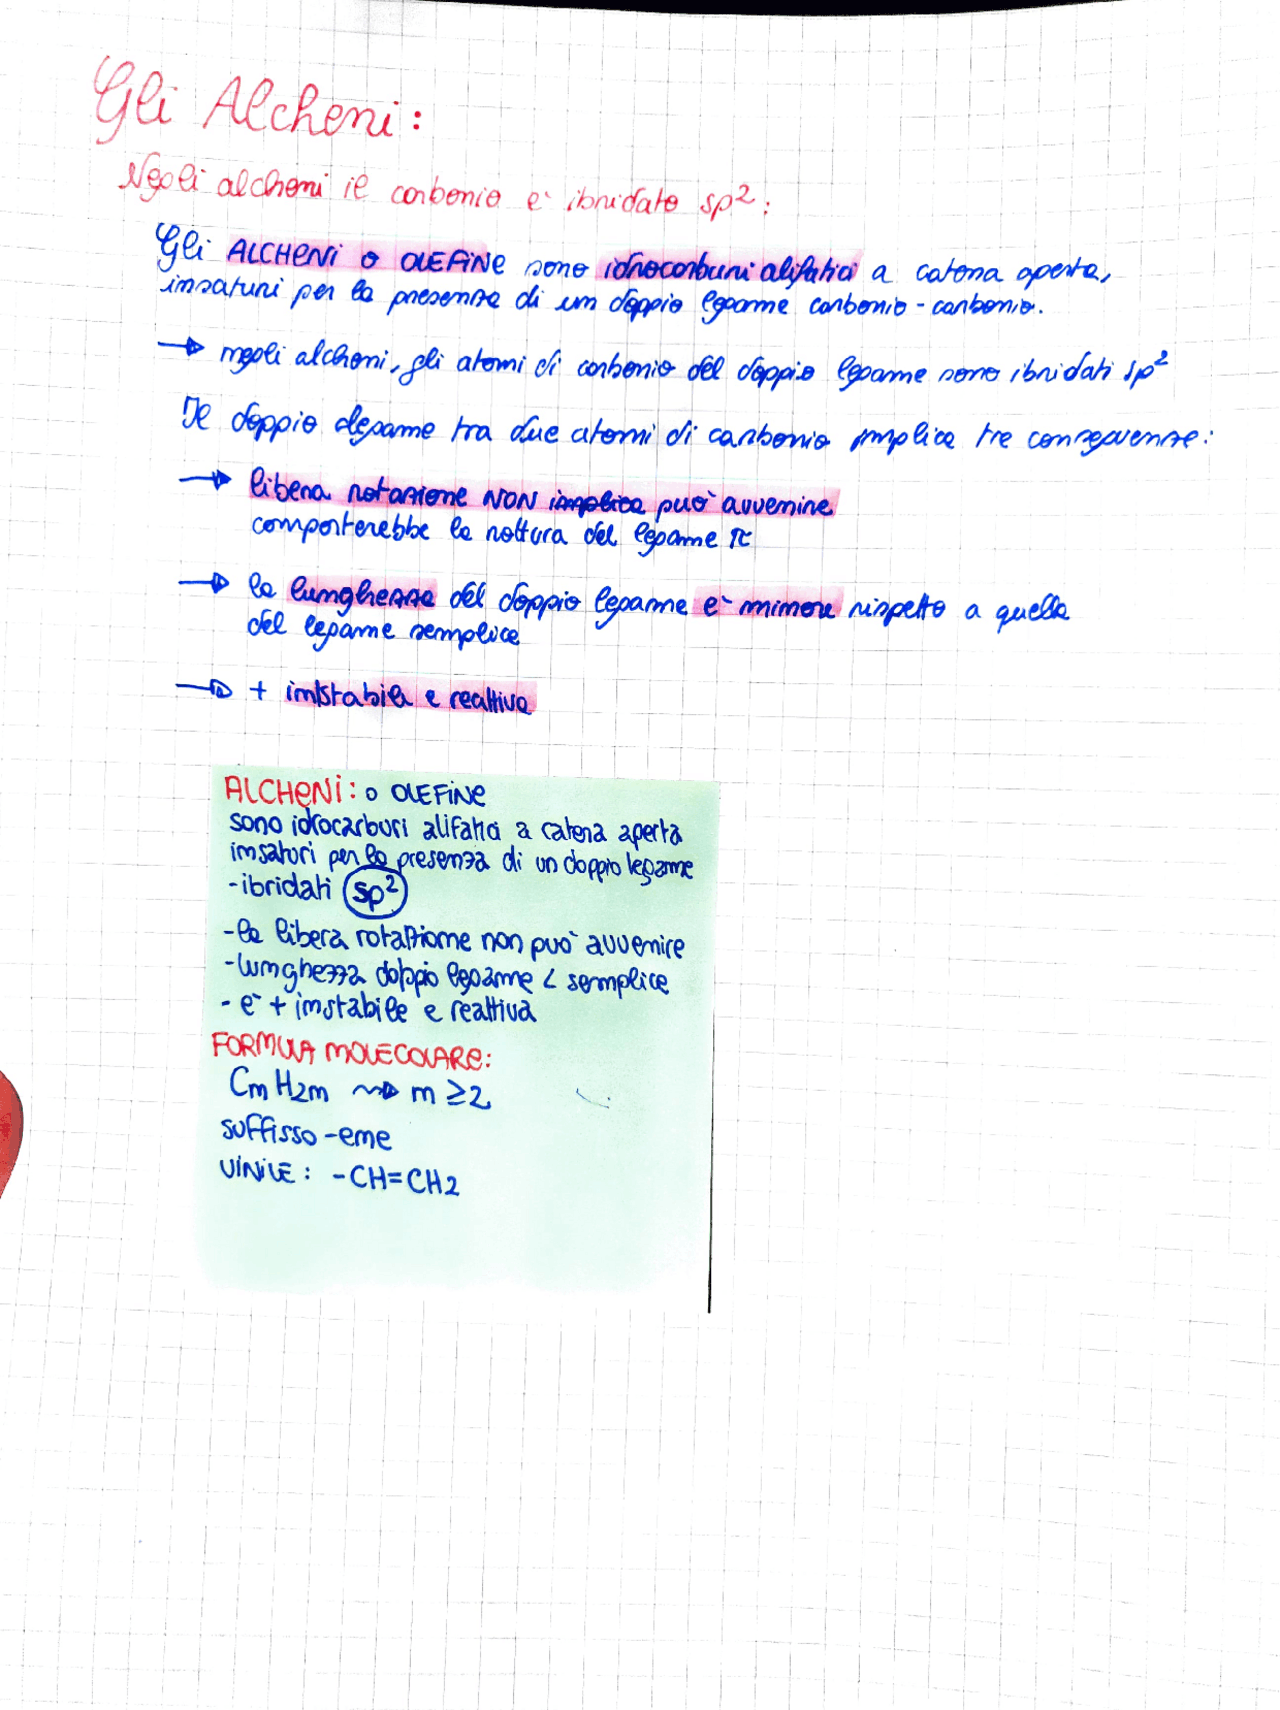 Gli Alcheni:
Negli alcheni il carbonio è ibridato sp²:
Gli ALCHENI o OLEFINE sono idrocarburi alifatici a catena aperta,
insaturi per la presenza di un doppio legame carbonio-carbonio.
→ negli alcheni, gli atomi di carbonio del doppio legame sono ibridati sp²
Il doppio legame tra due atomi di carbonio implica tre conseguenze:
→ libera rotazione NON implica può avvenire
comporterebbe la rottura del legame π
→ la lunghezza del doppio legame è minore rispetto a quella
del legame semplice
→ + instabile e reattiva
ALCHENI: o OLEFINE
sono idrocarburi alifatici a catena aperta
insaturi per la presenza di un doppio legame
-ibridati sp²
-la libera rotazione non può avvenire
-lunghezza doppio legame < semplice
- è + instabile e reattiva
FORMULA MOLECOLARE:
CnH2n ⇝ n ≥2
suffisso -ene
VINILE: -CH=CH2